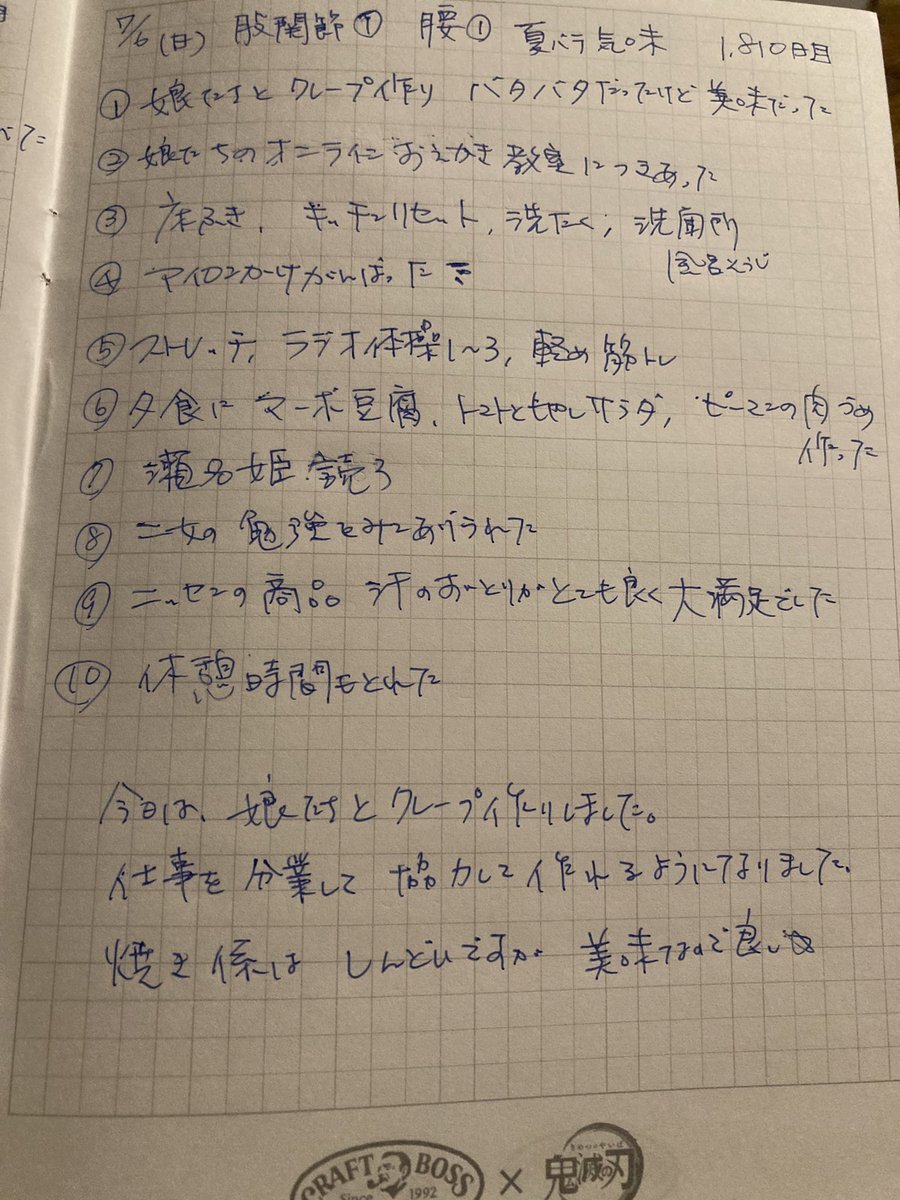 7/6(日) 股関節① 腰① 夏バテ気味 1,810日目
① 娘たちとクレープ作り バタバタだったけど美味だった
② 娘たちのオンラインおえかき教室につきあった
③ 床ふき、キッチンリセット、洗たく、洗面所
④ アイロンかけがんばった
⑤ ストレッチ、ラジオ体操1~3、軽め筋トレ
⑥ 夕食にマーボ豆腐、トマトともやしサラダ、ピーマンの肉づめ
作った
⑦ 瀬名姫 読了
⑧ 二女の勉強をみてあげられた
⑨ ニッセンの商品 汗のおとりがとても良く大満足でした
⑩ 休憩時間もとれた
今日は、娘たちとクレープ作りしました。
仕事を分業して 協力して作れるようになりました。
焼き係は しんどいですが 美味なので良し
CRAFT BOSS
Since 1992
×
きめつのやいば
鬼滅の刃